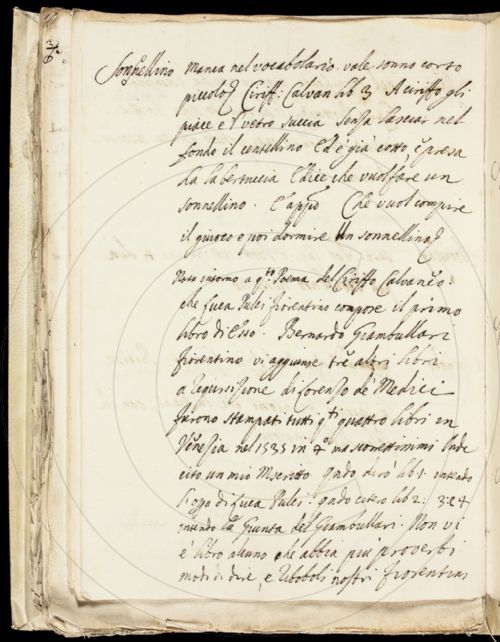 Sonnellino Manca nel vocabolario. vale sonno corto
piccolo Ciriff: Calvan lib 3 A ciriffo gli
piace e l vetro succia Senza lasciar nel
fondo il centellino Ed è già cotto e presa
ha la bertuccia E dice che vuol fare un
sonnellino. E app:o Che vuol compire
il giuoco e poi dormire un sonnellino
Nota intorno a q:to Poema del Ciriffo Calvaneo.
che Luca Pulci fiorentino compose il primo
libro di Esso. Bernardo Giambullari
fiorentino vi aggiunse tre altri libri
a requisizione di Lorenzo de Medici
furono stampati tutti q:ti quattro libri in
Venezia nel 1535 in 4 ma scorrettissimi
cito un mio Mscritto qndo dirò lib. 1. intendo
di Luca Pulci. qndo citero lib 2: 3: e 4
intendo la Giunta del Giambullari. Non vi
è libro alcuno che abbia più proverbi
modi di dire, e riboboli nostri fiorentini